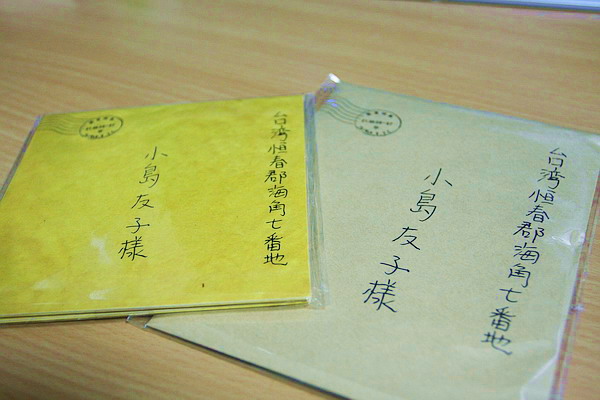 台湾恒春郡海角七番地
小島友子様
台湾恒春郡海角七番地
小島友子様